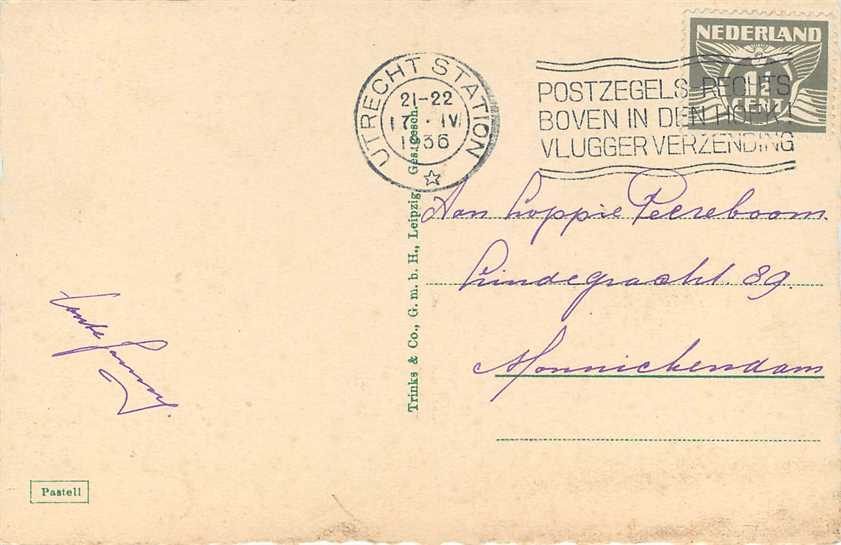 NEDERLAND
1½
CENT
UTRECHT STATION
21-22
17 · IV
1936
POSTZEGELS RECHTS
BOVEN IN DEN HOEK!
VLUGGER VERZENDING
Aan Coppie Peereboom.
Lindegracht 89.
Monnickendam
Trinks & Co., G. m. b. H., Leipzig. Ges. gesch.
tante
Pastell